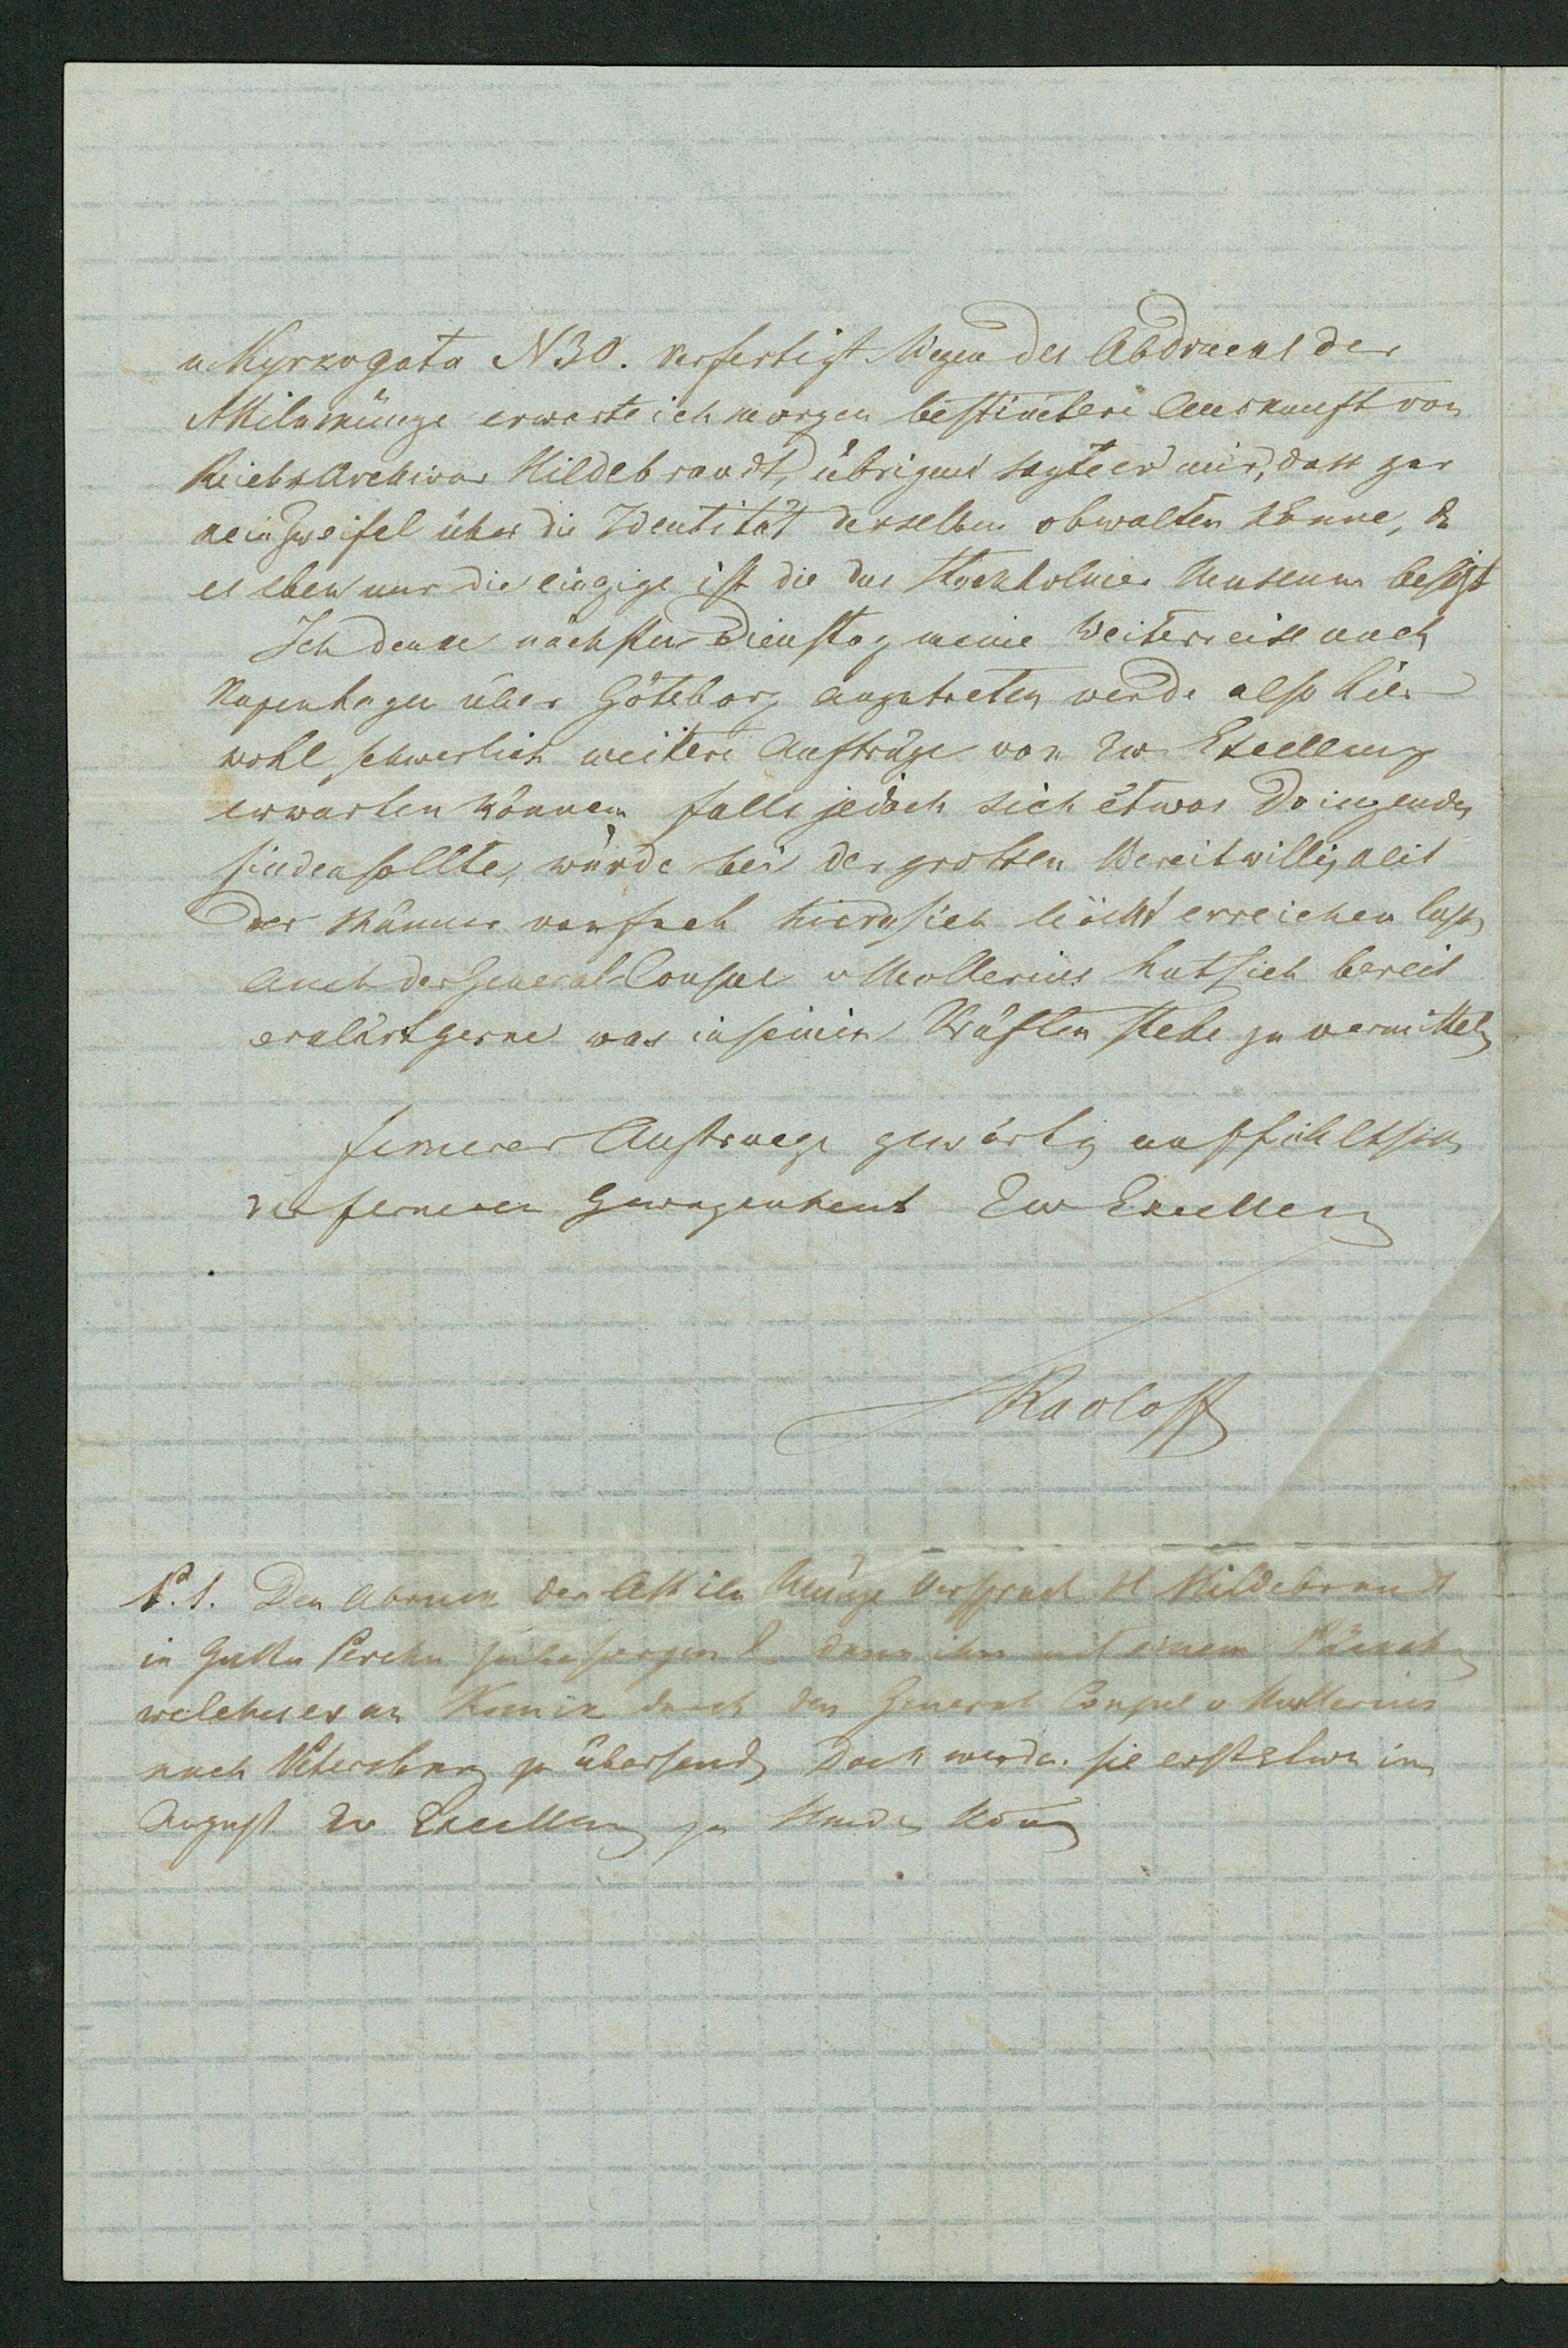 u Kyrkogata N 30. verfertigt Wegen des Abdrucks der
Attilamünze erwarte ich morgen bestimtere Auskunft von
Reichs Archivar Hildebrandt, übrigens sagte er mir, dass gar
kein Zweifel über die Identität derselben obwalten könne, da
es eben nur die einzige ist die das Stockholmer Museum besizt
Ich denke nächsten Dienstag meine Weiterreise nach
Kopenhagen über Göteborg anzutreten werde also hier
wohl schwerlich weitere Aufträge von Ew Excellenz
erwarten können falls jedoch sich etwas Dringendes
finden sollte, würde bei der grossen Bereitwilligkeit
der Männer von Fach hierin sich leicht erreichen lassen
auch der General Consul v Mollerius hat sich bereit
erklärt gerne was in seinen Kräften stehe zu vermitteln
fernerer Auftraege gewärtig empfiehlt sich
der ferneren Gewogenheit Ew Excellenz
Radloff
P.S. Den Abdruck der Attila Münze versprach H Hildebrandt
in Gutta Percha zu besorgen & dann ihn mit einem Päckchen
welches er an Kunik durch den General Consul v Mollerius
nach Petersburg zu übersenden Doch werde sie erst etwa im
August Ew Excellenz zu Handen